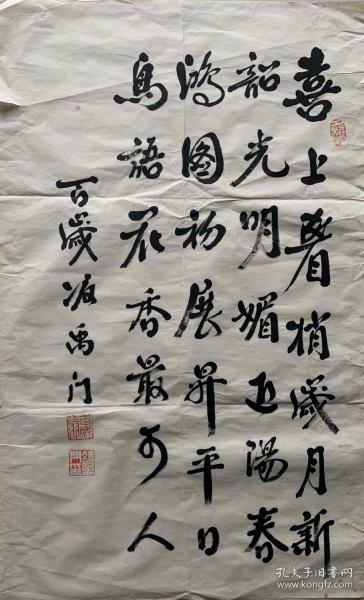 喜上眉梢歲月新
韶光明媚正陽春
鴻圖初展昇平日
鳥語花香最可人
百歲凌禹门
孔夫子旧书网
www.kongfz.com